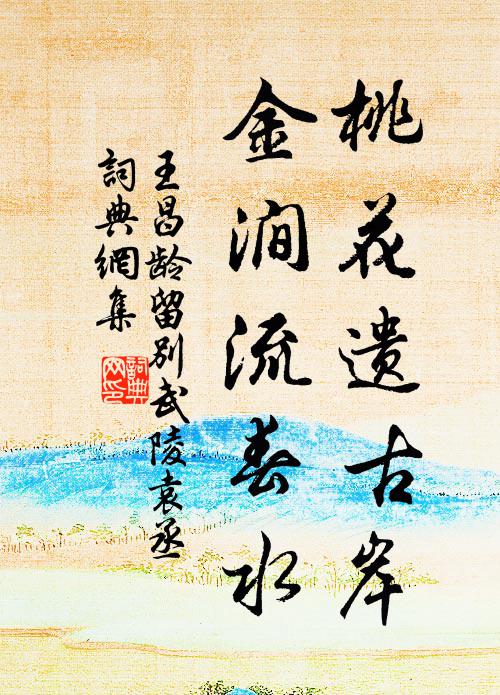 桃花遗古岸
金涧流春水
王昌龄留别武陵袁丞
詞典網集
詞典网印